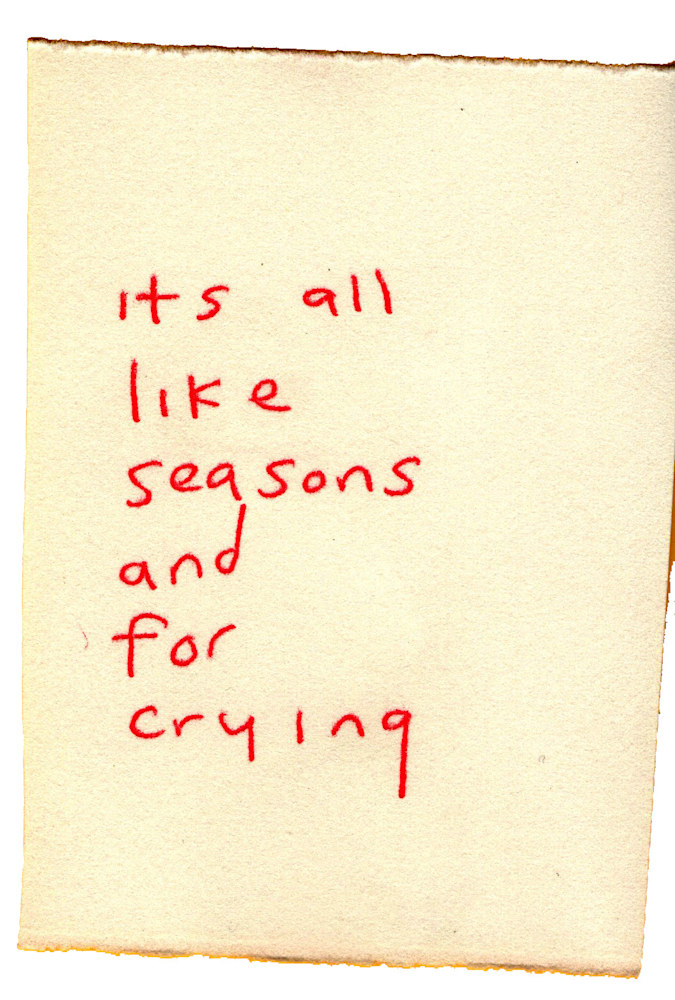 its all
like
seasons
and
for
crying